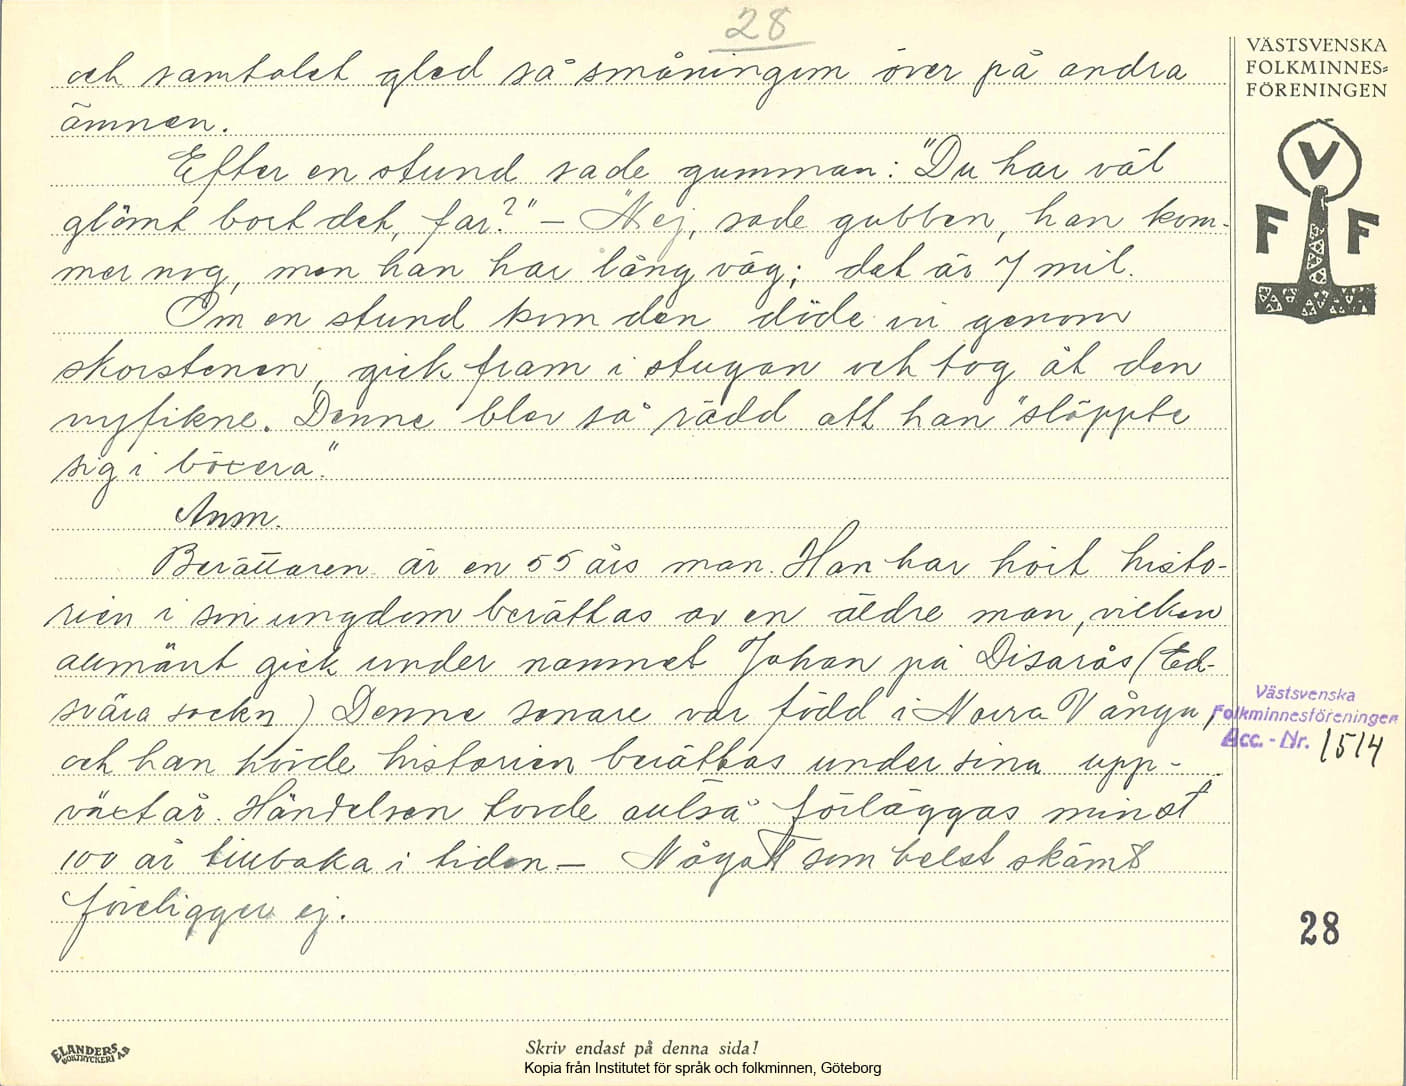 28
och samtalet gled så småningom över på andra
ämnen.
Efter en stund sade gumman: "Du har väl
glömt bort det, far?" — "Nej, sade gubben, han kom-
mer nog, men han har lång väg; det är 7 mil.
Om en stund kom den döde in genom
skorstenen, gick fram i stugan och tog åt den
nyfikne. Denne blev så rädd att han "släppte
sig i böxera".
Anm.
Berättaren är en 55 års man. Han har hört histo-
rien i sin ungdom berättas av en äldre man, vilken
allmänt gick under namnet Johan på Disarås (Ed-
svära sockn) Denne senare var född i Norra Vånga,
och han hörde historien berättas under sina upp-
växtår. Händelsen torde alltså förläggas minst
100 år tillbaka i tiden — Något som helst skämt
föreligger ej.
VÄSTSVENSKA
FOLKMINNES-
FÖRENINGEN
V
F F
Västsvenska
Folkminnesföreningen
Acc. - Nr. 1514
28
ELANDERS
BOKTRYCKERI A.B
Skriv endast på denna sida!
Kopia från Institutet för språk och folkminnen, Göteborg